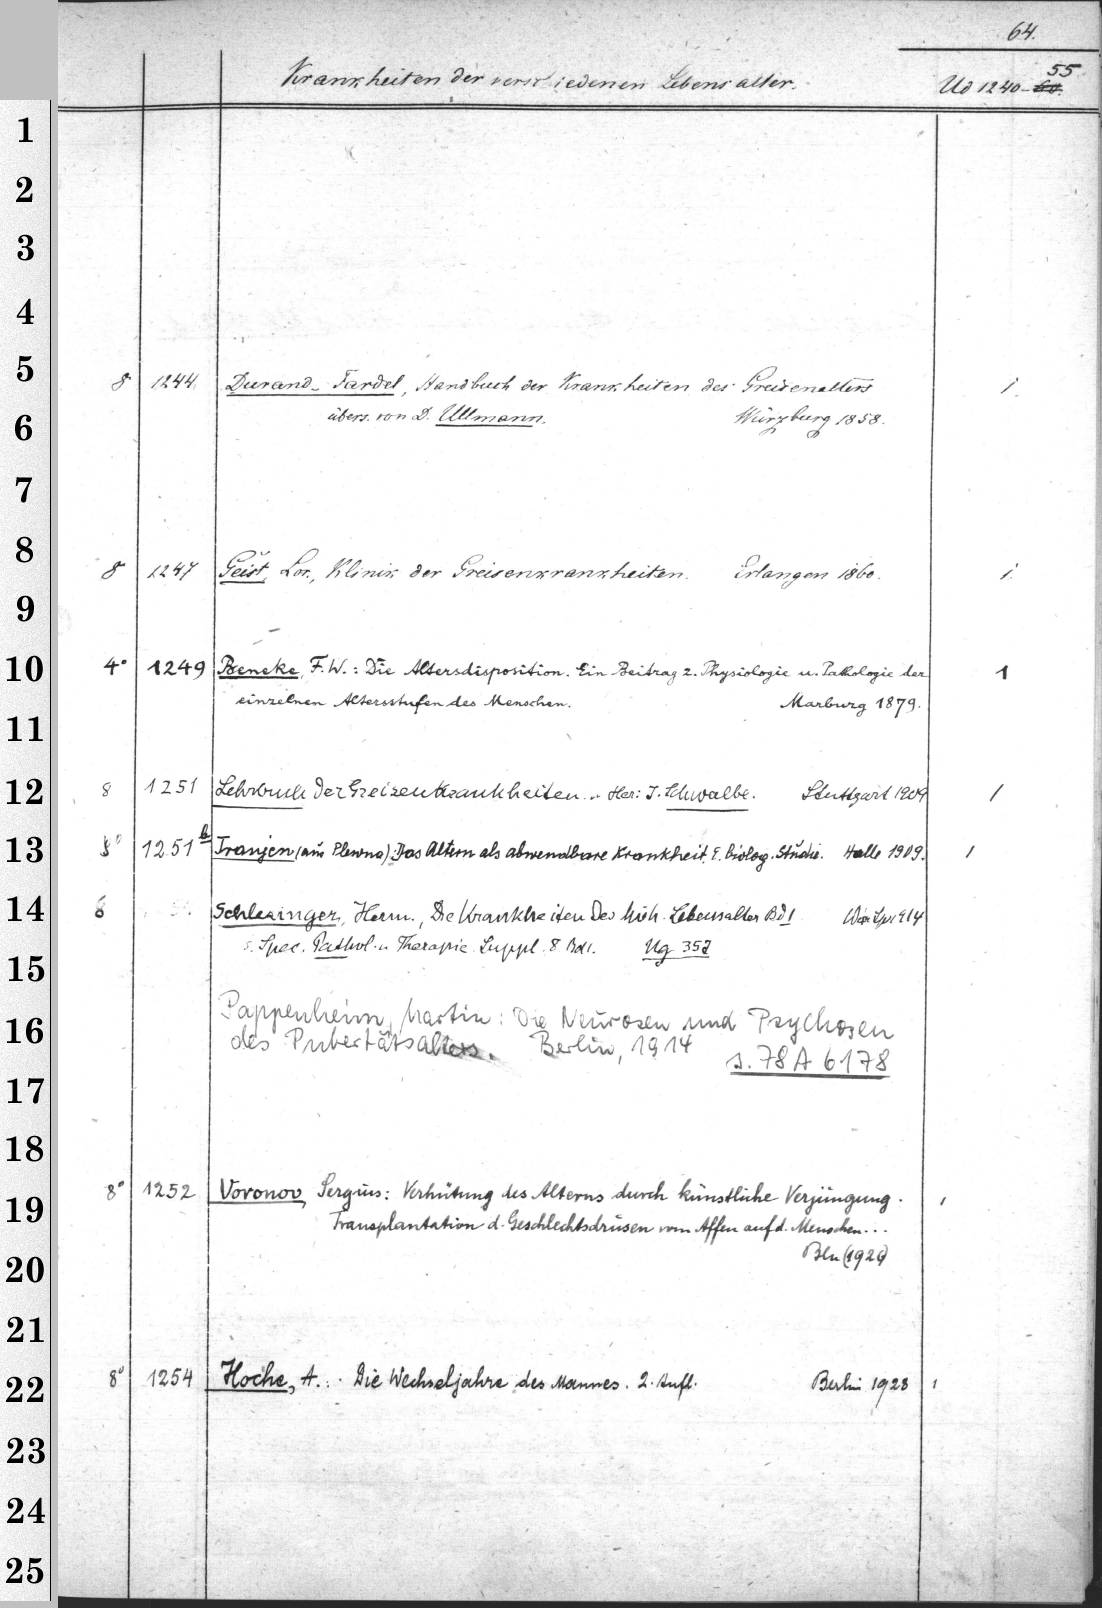 64.
Krankheiten der verschiedenen Lebensalter. Ud 1240-60. 55
1
2
3
4
5
8 1244. Durand-Fardel, Handbuch der Krankheiten des Greisenalters 1.
übers. von D. Ullmann. Würzburg 1858.
6
7
8
8 1247 Geist, Lor., Klinik der Greisenkrankheiten. Erlangen 1860. 1.
9
10
4° 1249 Beneke, F.W.: Die Altersdisposition. Ein Beitrag z. Physiologie u. Pathologie der 1
einzelnen Altersstufen des Menschen. Marburg 1879.
11
12
8 1251 Lehrbuch der Greisenkrankheiten .. Her: J. Schwalbe. Stuttgart 1909 1
13
8° 1251b Tranjen (aus Plewna): Das Altern als abwendbare Krankheit. E. Biolog. Studie. Halle 1909. 1
14
8 Schlesinger, Herm., Die Krankheiten des höh. Lebensalter Bd 1 1914
s. Spec. Pathol. u Therapie Suppl. 8 Bd 1. Ug 352
15
16
Pappenheim, Martin: Die Neurosen und Psychosen
des Pubertätsalters. Berlin, 1914
s. 78 A 6178
17
18
19
8° 1252 Voronov, Sergius: Verhütung des Alterns durch künstliche Verjüngung. 1
Transplantation d. Geschlechtsdrüsen vom Affen auf d. Menschen...
Bln (1926)
20
21
22
8° 1254 Hoche, A.: Die Wechseljahre des Mannes. 2. Aufl. Berlin 1928 1
23
24
25